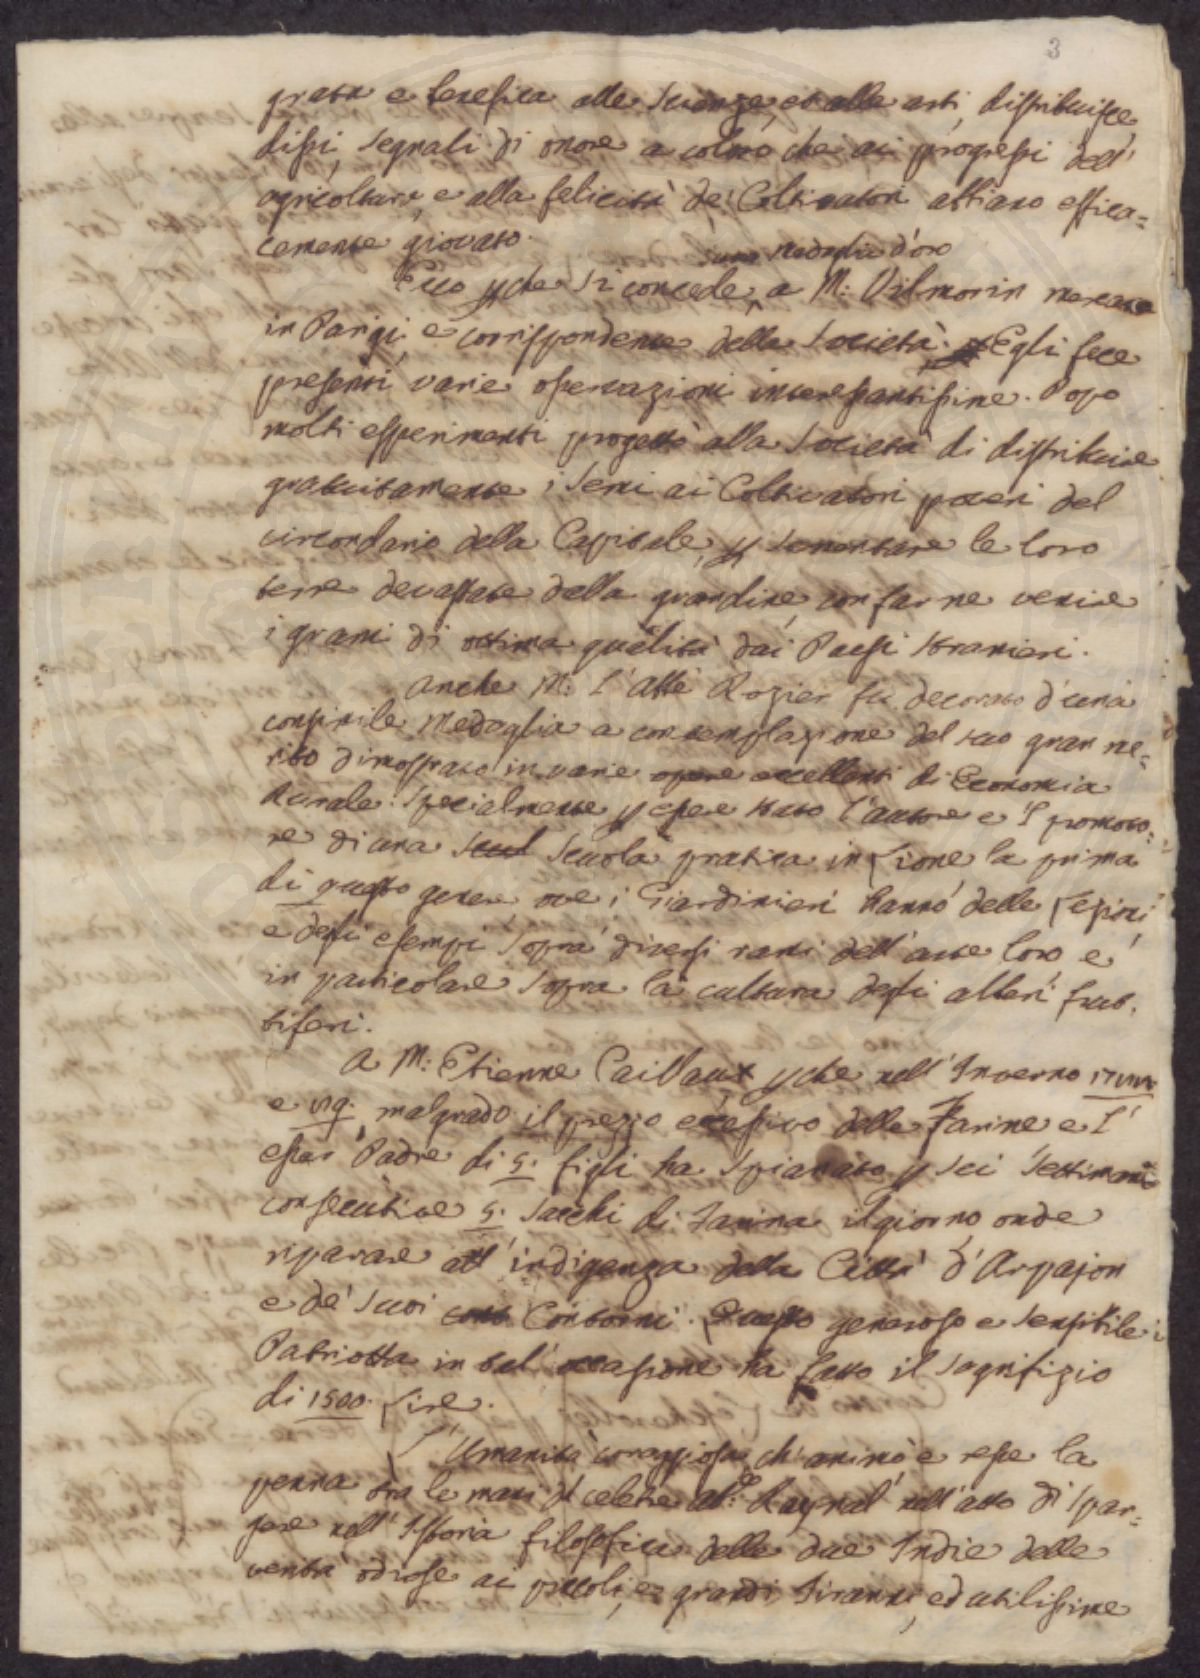 3
grata e benefica alle scienze, et alle arti, distribuisce,
dissi, segnali di onore a coloro che ai progressi dell'
agricoltura, e alla felicità de' Coltivatori abbiano effica=
cemente giovato.
una medaglia d'oro
Ecco pche si concede a M: Vilmorin mercante
in Parigi, e corrispondente della Società. Egli fece
presenti varie osservazioni interessantissime. Dopo
molti esperimenti progettò alla Società di distribuire
gratuitamente i semi ai Coltivatori poveri del
circondario della Capitale, p sementare le loro
terre devastate dalla grandine, con farne venire
i grani di ottima qualità dai Paesi stranieri.
Anche M: l'Abbé Rozier fu decorato d'una
consimile medaglia a contemplazione del suo gran me=
rito dimostrato in varie opere eccellenti di Economia
Rurale. Specialmente p essere stato l'autore e 'l promoto=
re di una Scuola pratica in Lione la prima
di questo genere ove i Giardinieri hanno delle Lezioni,
e degli esempi sopra diversi rami dell'arte loro e
in particolare sopra la cultura degli alberi frut=
tiferi.
A M: Etienne Caillaux pche nell'Inverno
e malgrado il prezzo eccessivo delle Farine e l'
esser Padre di 5. figli ha spianato p sei settimane
consecutive 5. sacchi di farina il giorno, onde
riparare all'indigenza della Città d'Arpajon
e de' suoi Contorni. Questo generoso e sensibile
Patriotta in tal'occasione ha fatto il sagrifizio
di 1500. Lire.
L'Umanità coraggiosa, ch'animò e rese la
penna tra le mani del celebre Ab.e Raynal nell'atto di spar=
gere nell'Istoria filosofica delle due Indie delle
verità odiose ai piccoli, e grandi Tiranni, ed utilissime